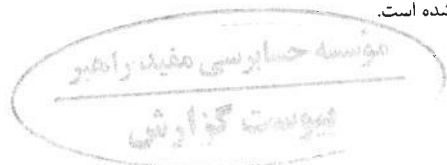 شده است.
مؤسسه حسابرسی مفید راهبر
پیوست گزارش